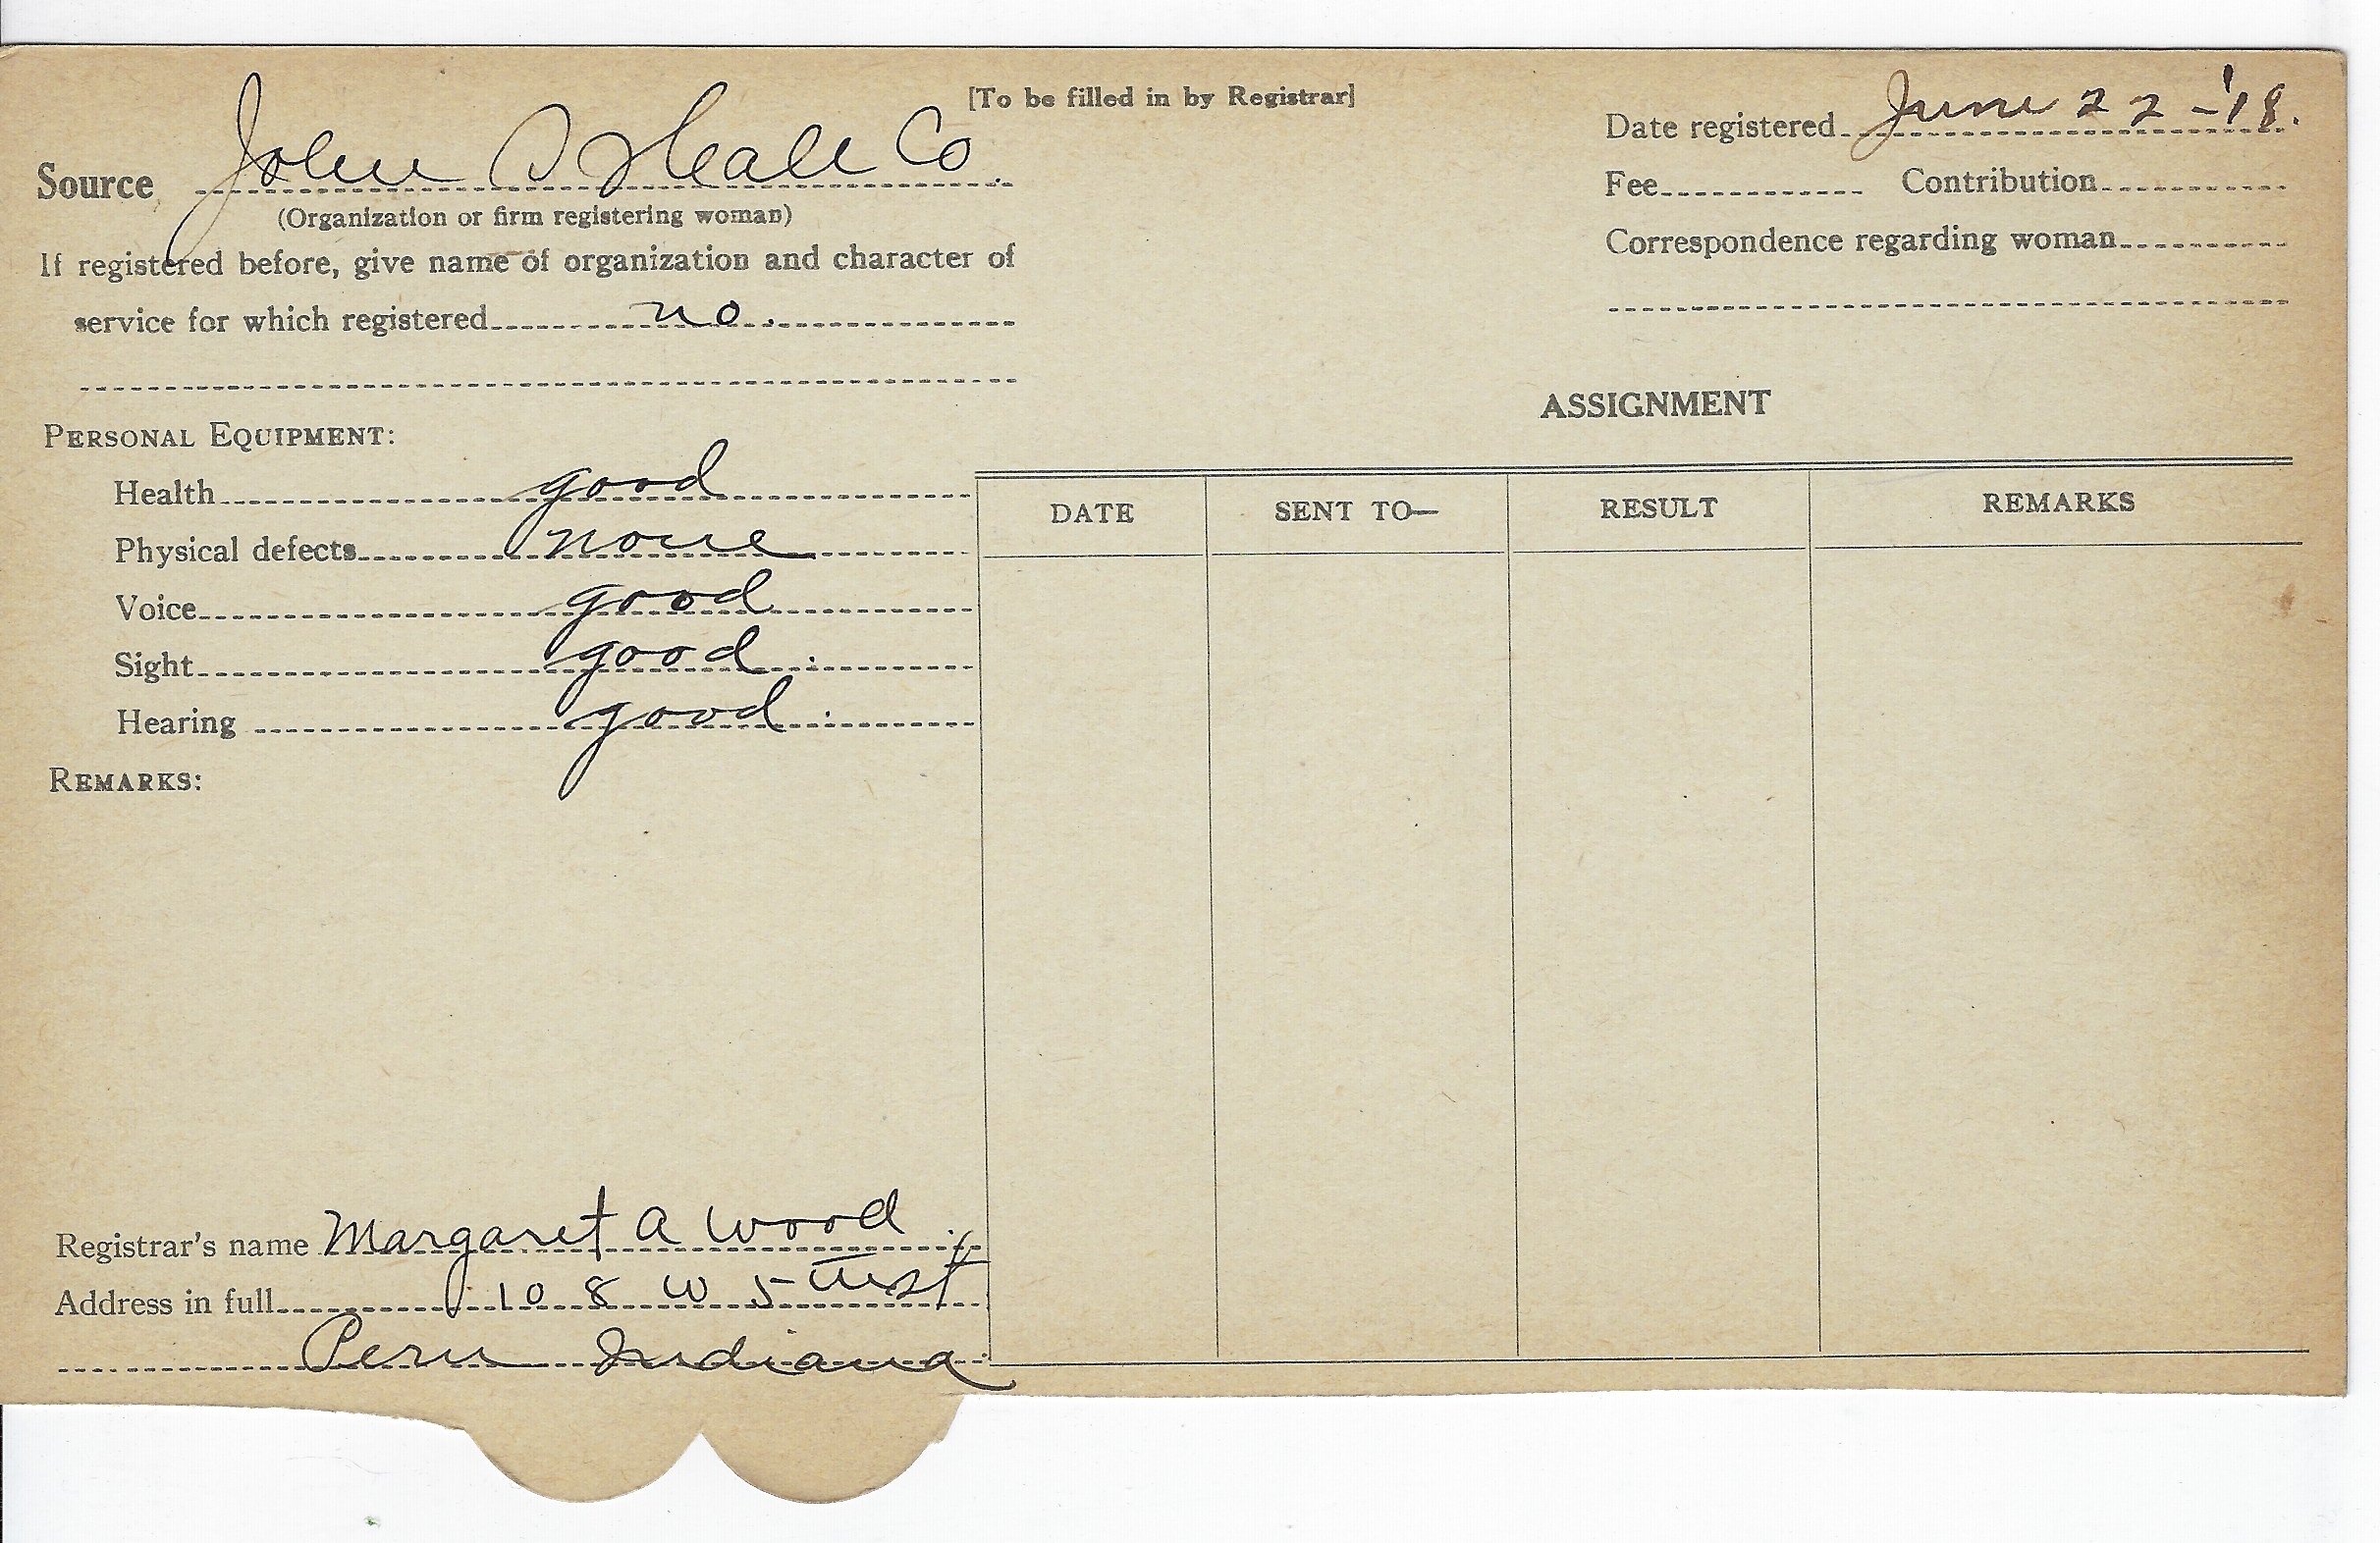 [To be filled in by Registrar]
Source John Co.
(Organization or firm registering woman)
If registered before, give name of organization and character of
service for which registered no.
Date registered June 22-'18.
Fee Contribution
Correspondence regarding woman
PERSONAL EQUIPMENT:
Health good
Physical defects none
Voice good
Sight good
Hearing good
REMARKS:
ASSIGNMENT
DATE SENT TO— RESULT REMARKS
Registrar's name Margaret A Wood
Address in full 108 W 5 st
Peru Indiana